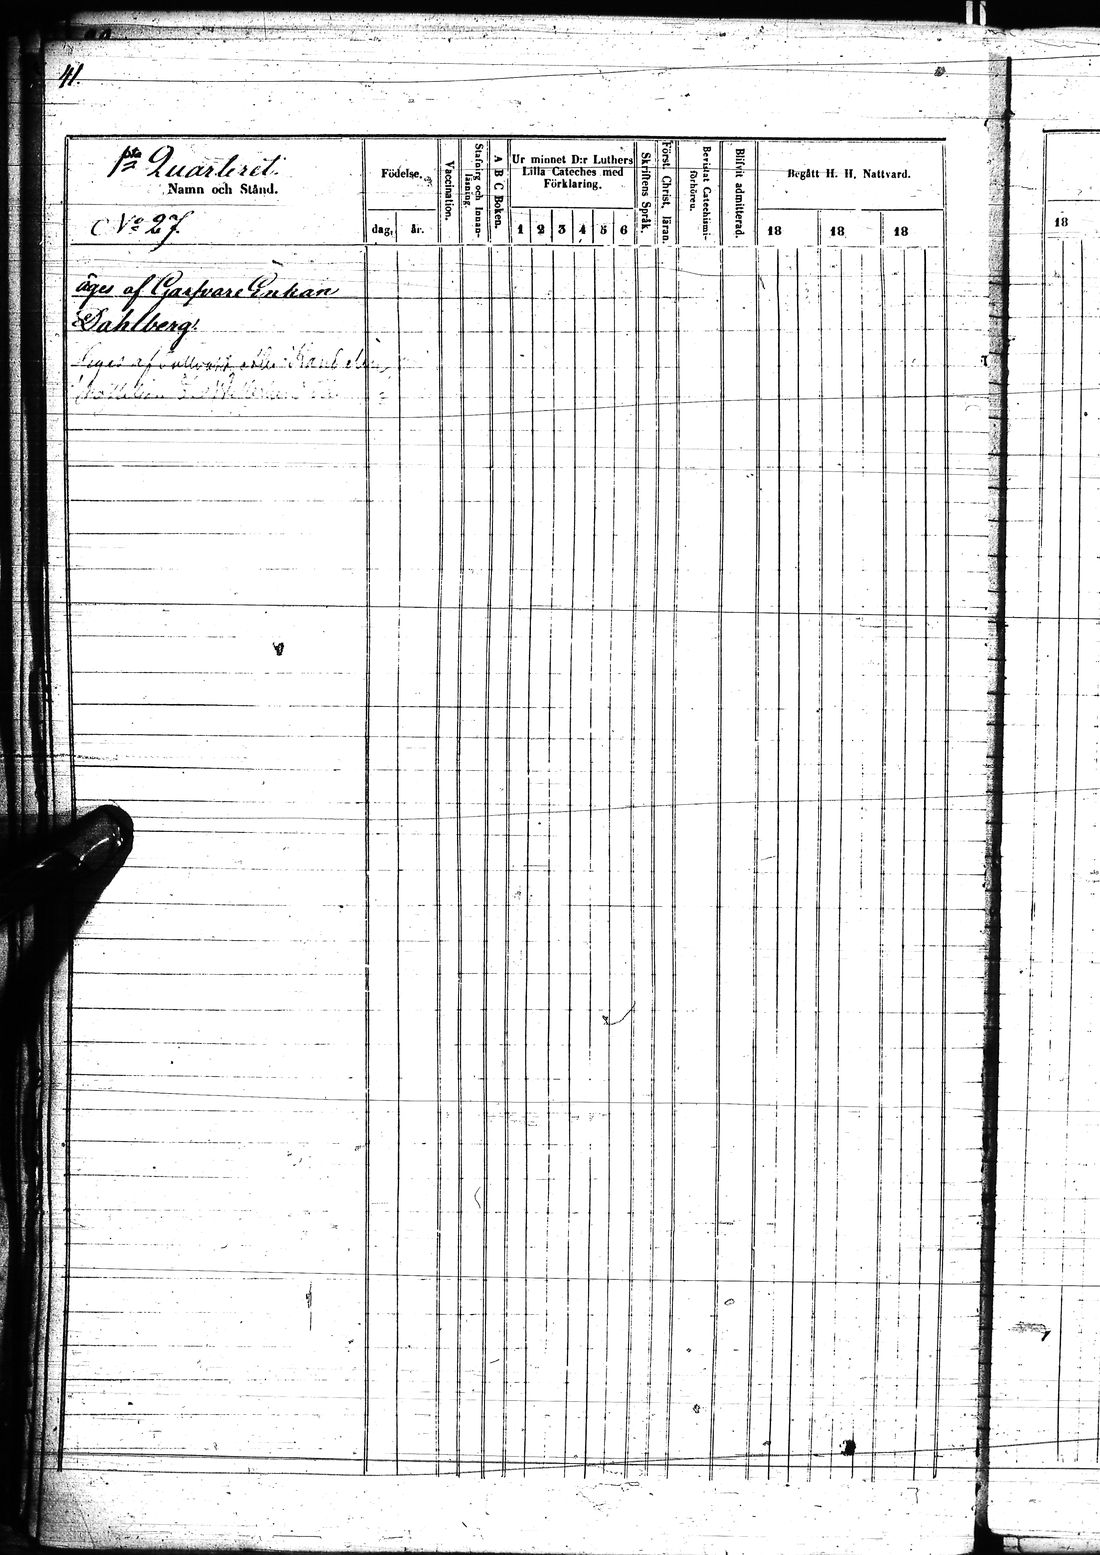 41.
1sta Quarteret.
Namn och Stånd.
No 27.
Födelse.
dag. år.
Vaccination.
Stafning och Innan-
läsning.
A B C Boken.
Ur minnet D:r Luthers
Lilla Cateches med
Förklaring.
1 2 3 4 5 6
Skriftens Språk.
Först. Christ. läran.
Bevistat Catechismi-
förhören.
Blifvit admitterad.
Begått H. H. Nattvard.
18 18 18
äges af Garfvare Enkan
Dahlberg.
Äges af
18